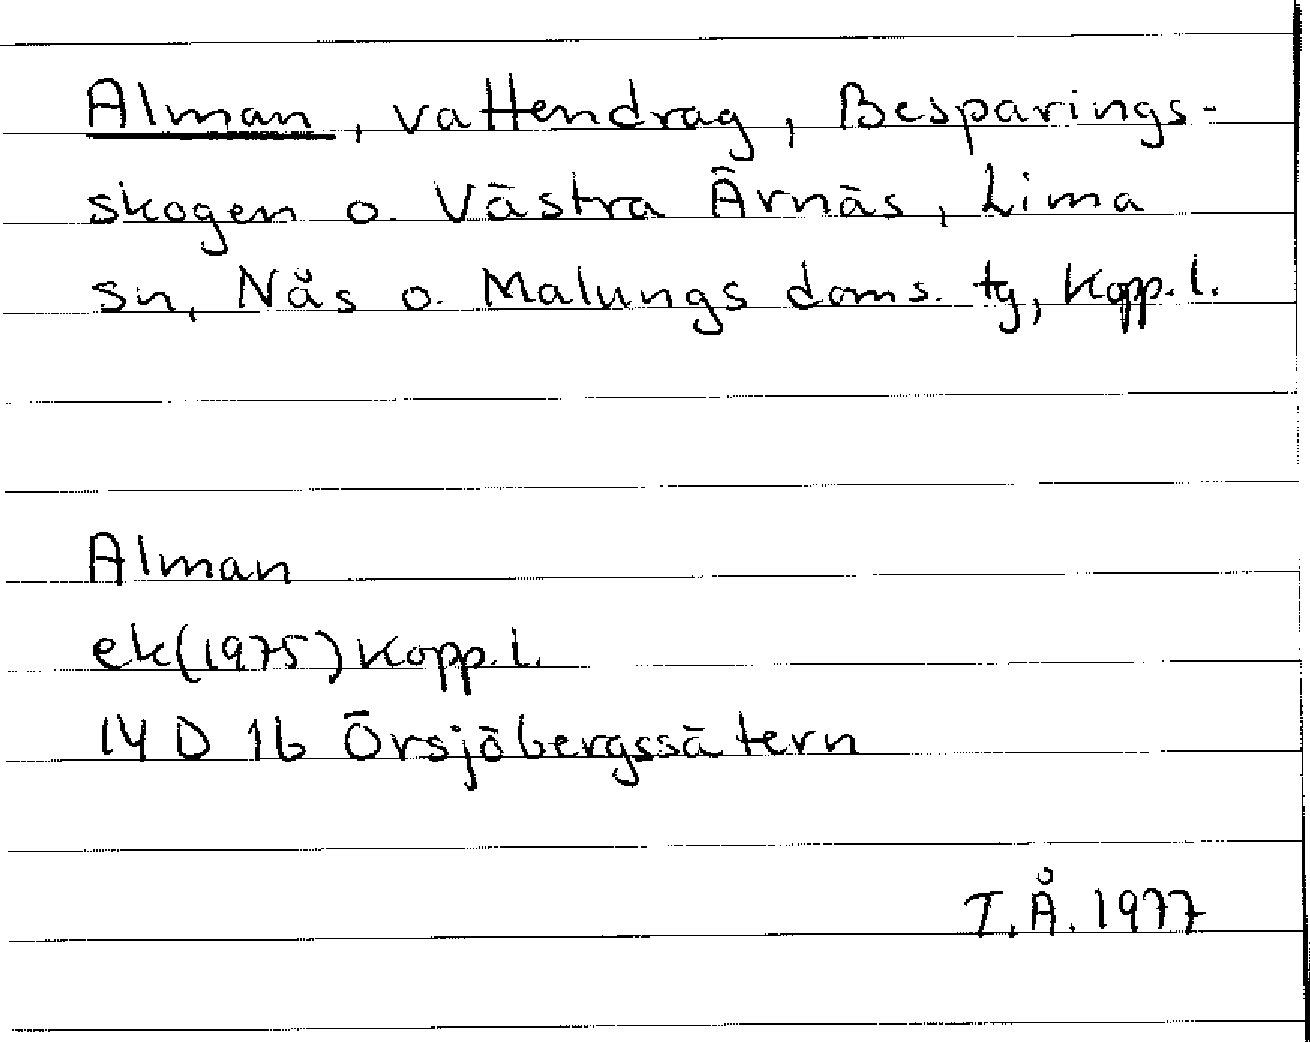 Alman, vattendrag, Besparings-
skogen o. Västra Ärnäs, Lima
sn, Nås o. Malungs doms. tg, Kopp. l.
Alman
ek(1975) Kopp. l.
14 D 1b Örsjöbergssätern
T.Å. 1977